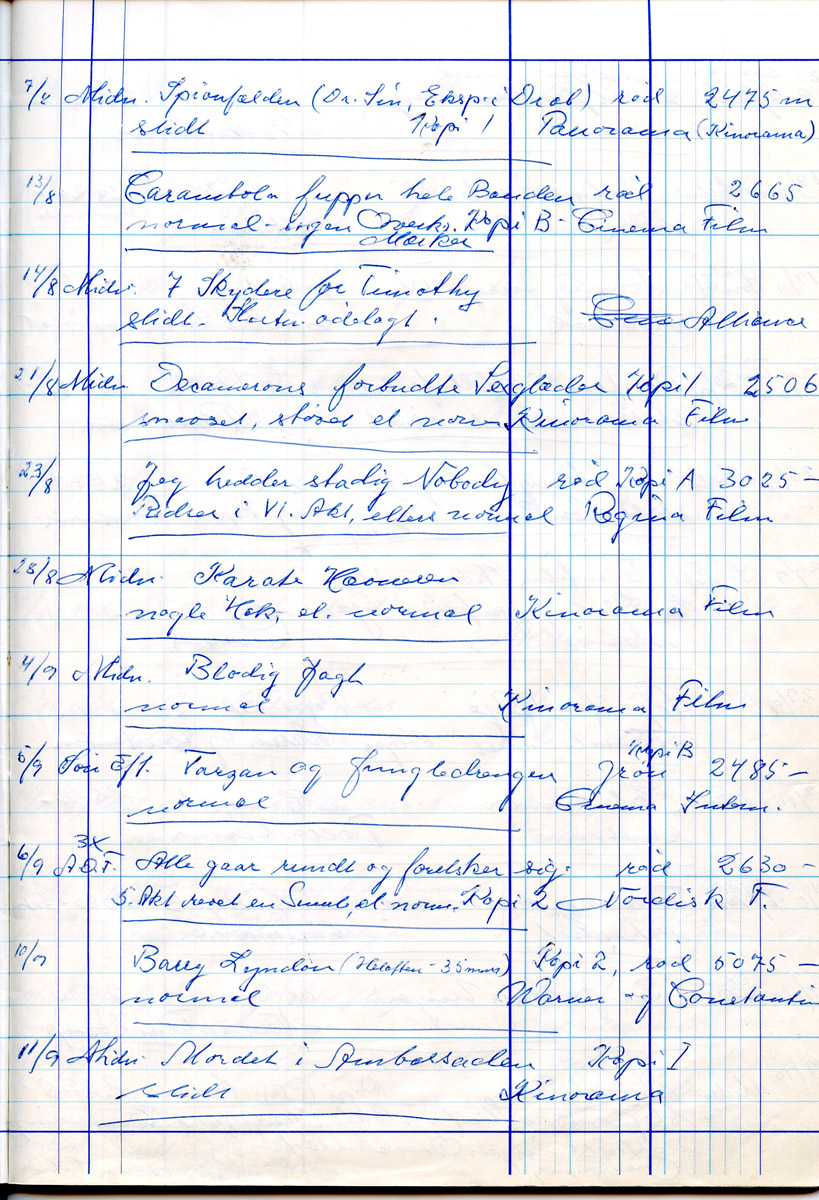 7/8 Midn. Spionfælden (Dr. Sin, Eksp. i Drab) rød 2475 m
slidt Kopi 1 Panorama (Kinorama)
13/8 Carambola fupper hele Banden rød 2665
normal - ingen Overks. Mærker Kopi B - Cinema Film
14/8 Midn. 7 Skydere for Timothy
slidt. Slutn. ødelagt. Alliance
21/8 Midn. Decamerons forbudte Sexglæder Kopi 1 2506
snavset, støvet el. norm. Kinorama Film
23/8 Jeg hedder stadig Nobody rød Kopi A 3025 -
Ridser i VI. Akt, ellers normal Regina Film
28/8 Midn. Karate
nogle Hak, el. normal Kinorama Film
4/9 Midn. Blodig Jagt
normal Kinorama Film
5/9 Tarzan og Jungledrengen grøn Kopi B 2485 -
normal Cinema Intern.
6/9 3X A.O.F. Alle gaar rundt og forelsker sig. rød 2630 -
5. Akt revet en Smule, el. norm. Kopi 2 Nordisk F.
10/9 Barry Lyndon (Helaften - 35 mm) Kopi 2, rød 5075 -
normal Warner og Constantin
11/9 Midn. Mordet i Ambassaden Kopi I
slidt Kinorama